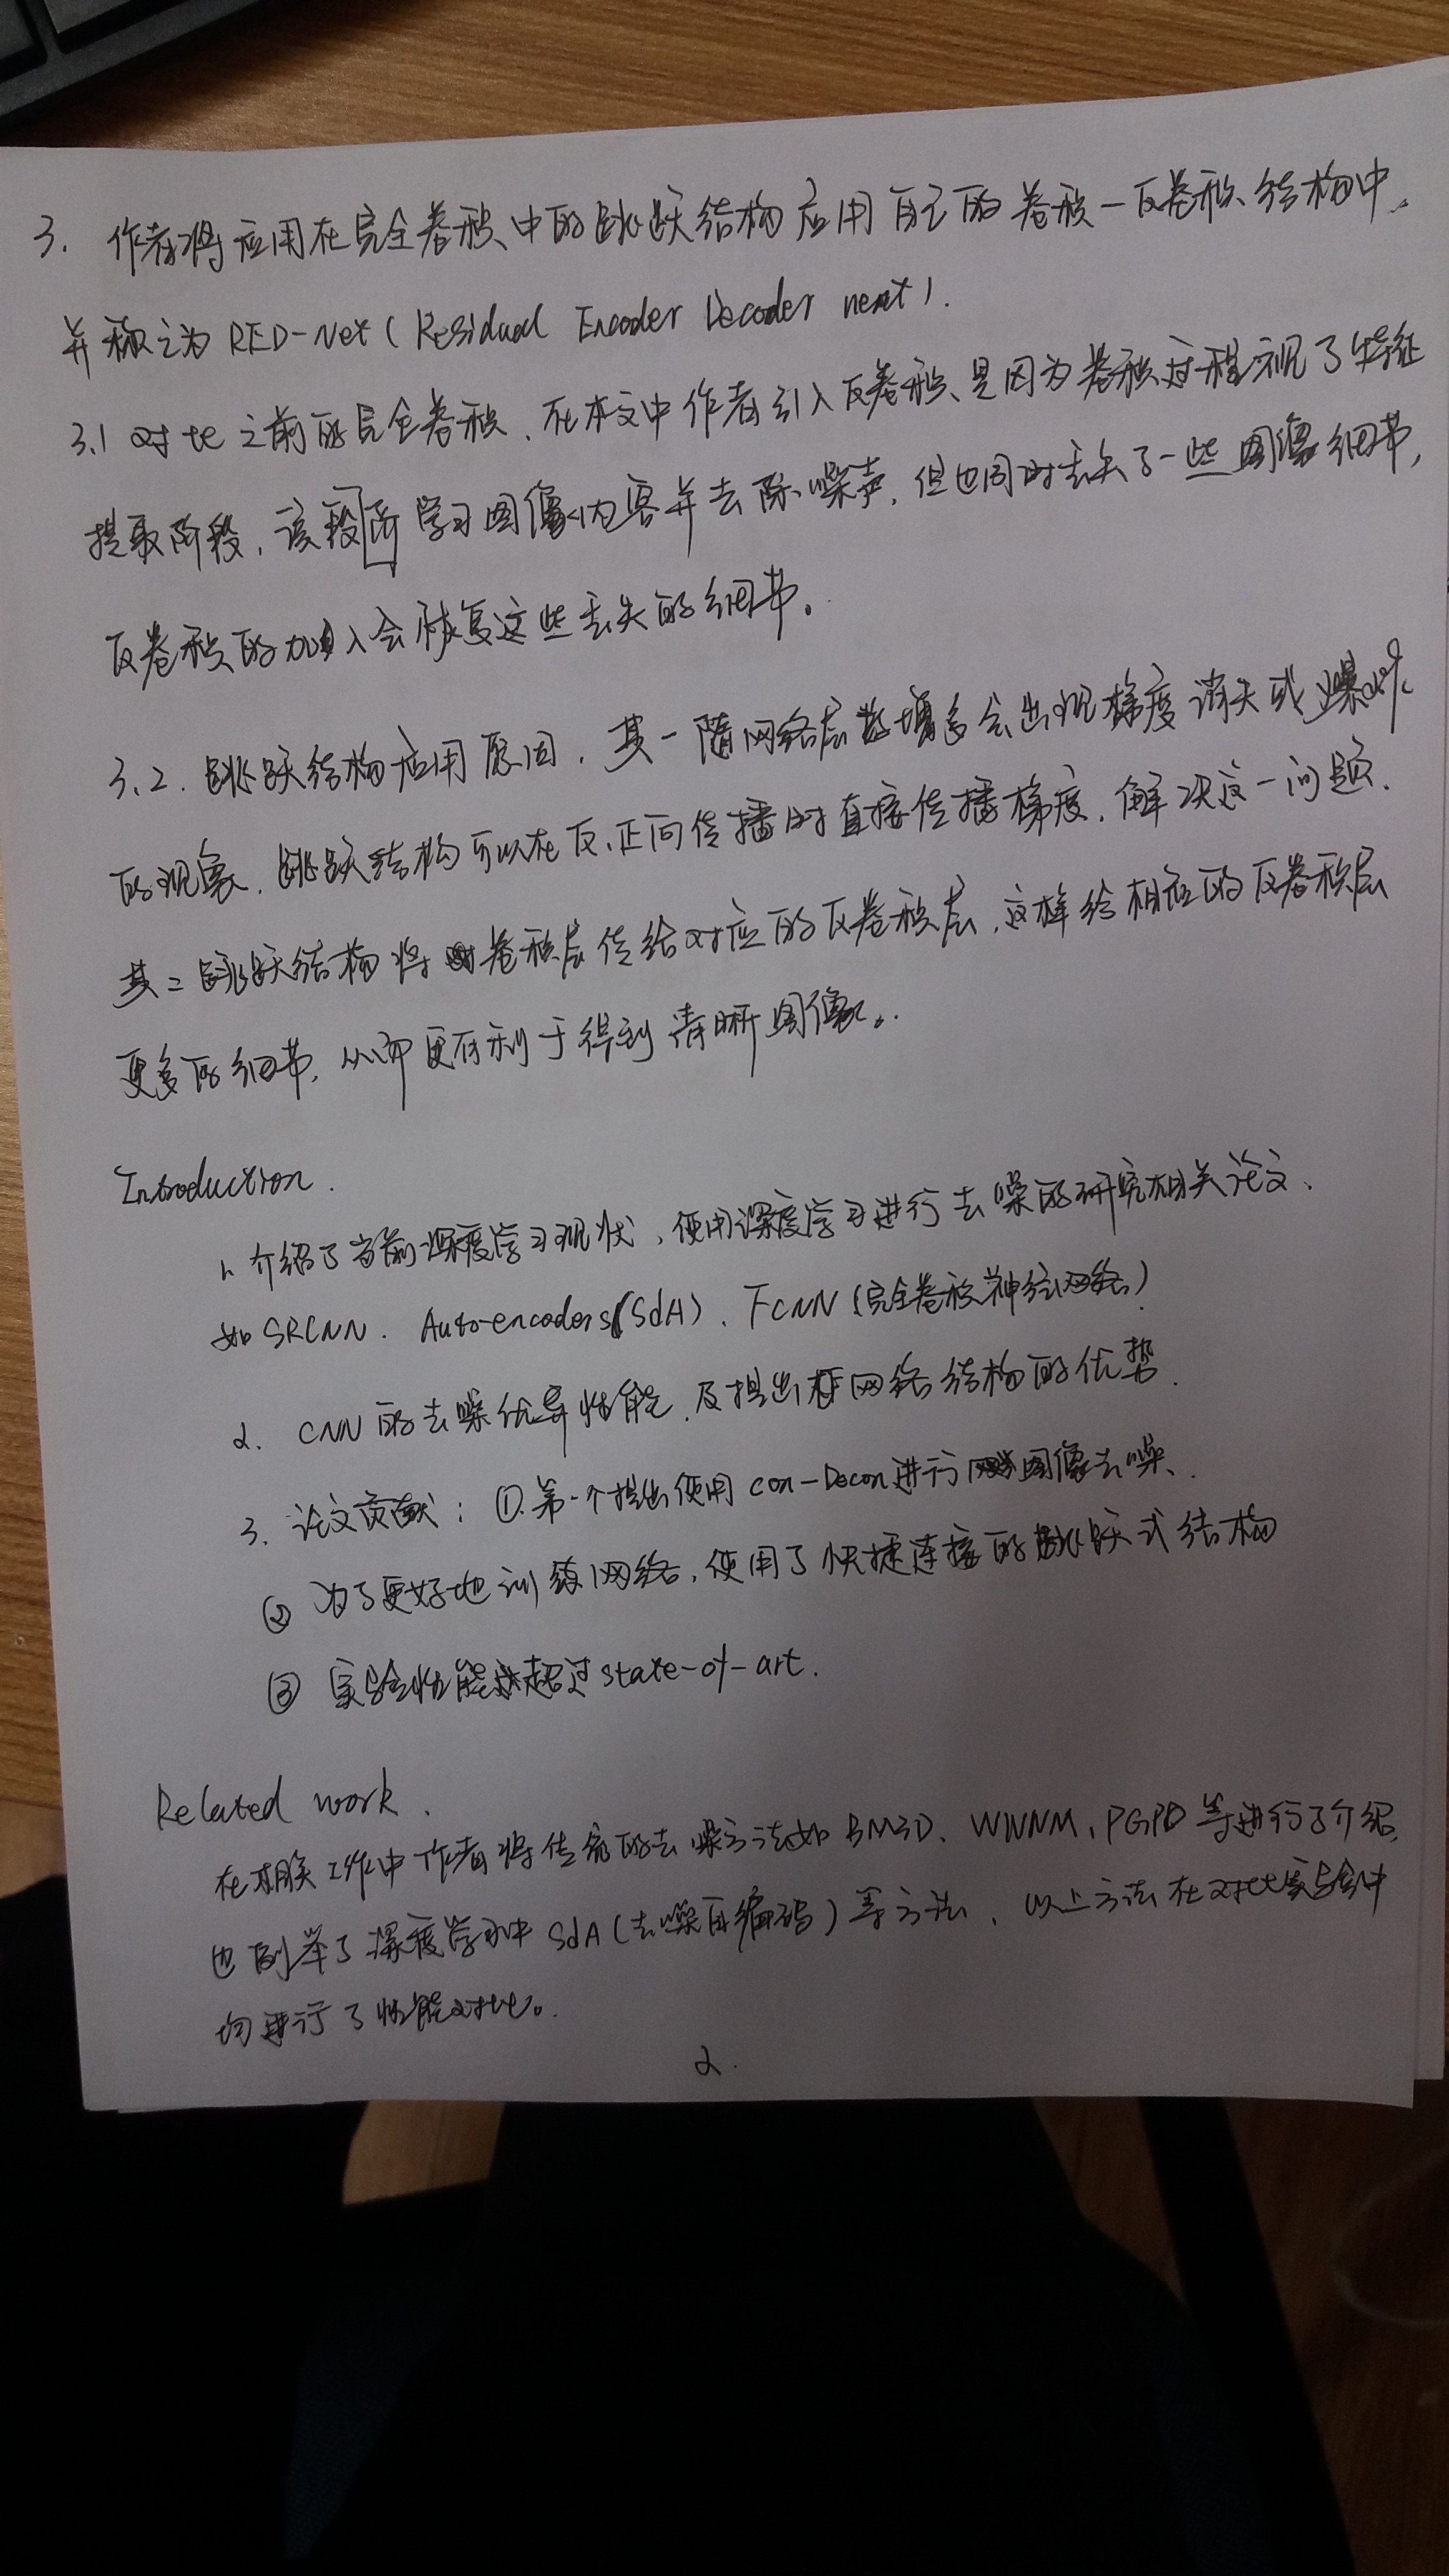 3. 作者将应用在完全卷积中的跳跃结构应用自己的卷积-反卷积结构中,
并称之为 RED-Net ( Residual Encoder Decoder ).
3.1 对比之前的完全卷积, 在本文中作者引入反卷积、是因为卷积过程视了特征
提取阶段, 该段阶学习图像内容并去除噪声, 但也同时丢失了一些图像细节,
反卷积的加入会恢复这些丢失的细节。
3.2. 跳跃结构应用原因, 其一随网络层数增多会出现梯度消失或爆炸
的现象. 跳跃结构可以在反、正向传播时直接传播梯度, 解决这一问题.
其二跳跃结构将卷积层传给对应的反卷积层, 这样给相应的反卷积层
更多的细节, 从而更有利于得到清晰图像。
Introduction.
1. 介绍了当前深度学习现状, 使用深度学习进行去噪的研究相关论文.
如 SRCNN. Auto-encoders(SdA)、FCNN (完全卷积神经网络)
2. CNN 的去噪优异性能, 及提出框网络结构的优势.
3. 论文贡献: ①. 第一个提出使用 con-Decon进行图像去噪、
② 为了更好地训练网络, 使用了快捷连接的跳跃式结构
③ 实验性能超过state-of-art.
Related work.
在相关工作中作者将传统的去噪方法如 BM3D、WNNM、PGPD 等进行了介绍,
也列举了深度学习中 SdA (去噪自编码) 等方法、以上方法在对比实验中
均进行了性能对比。
2.